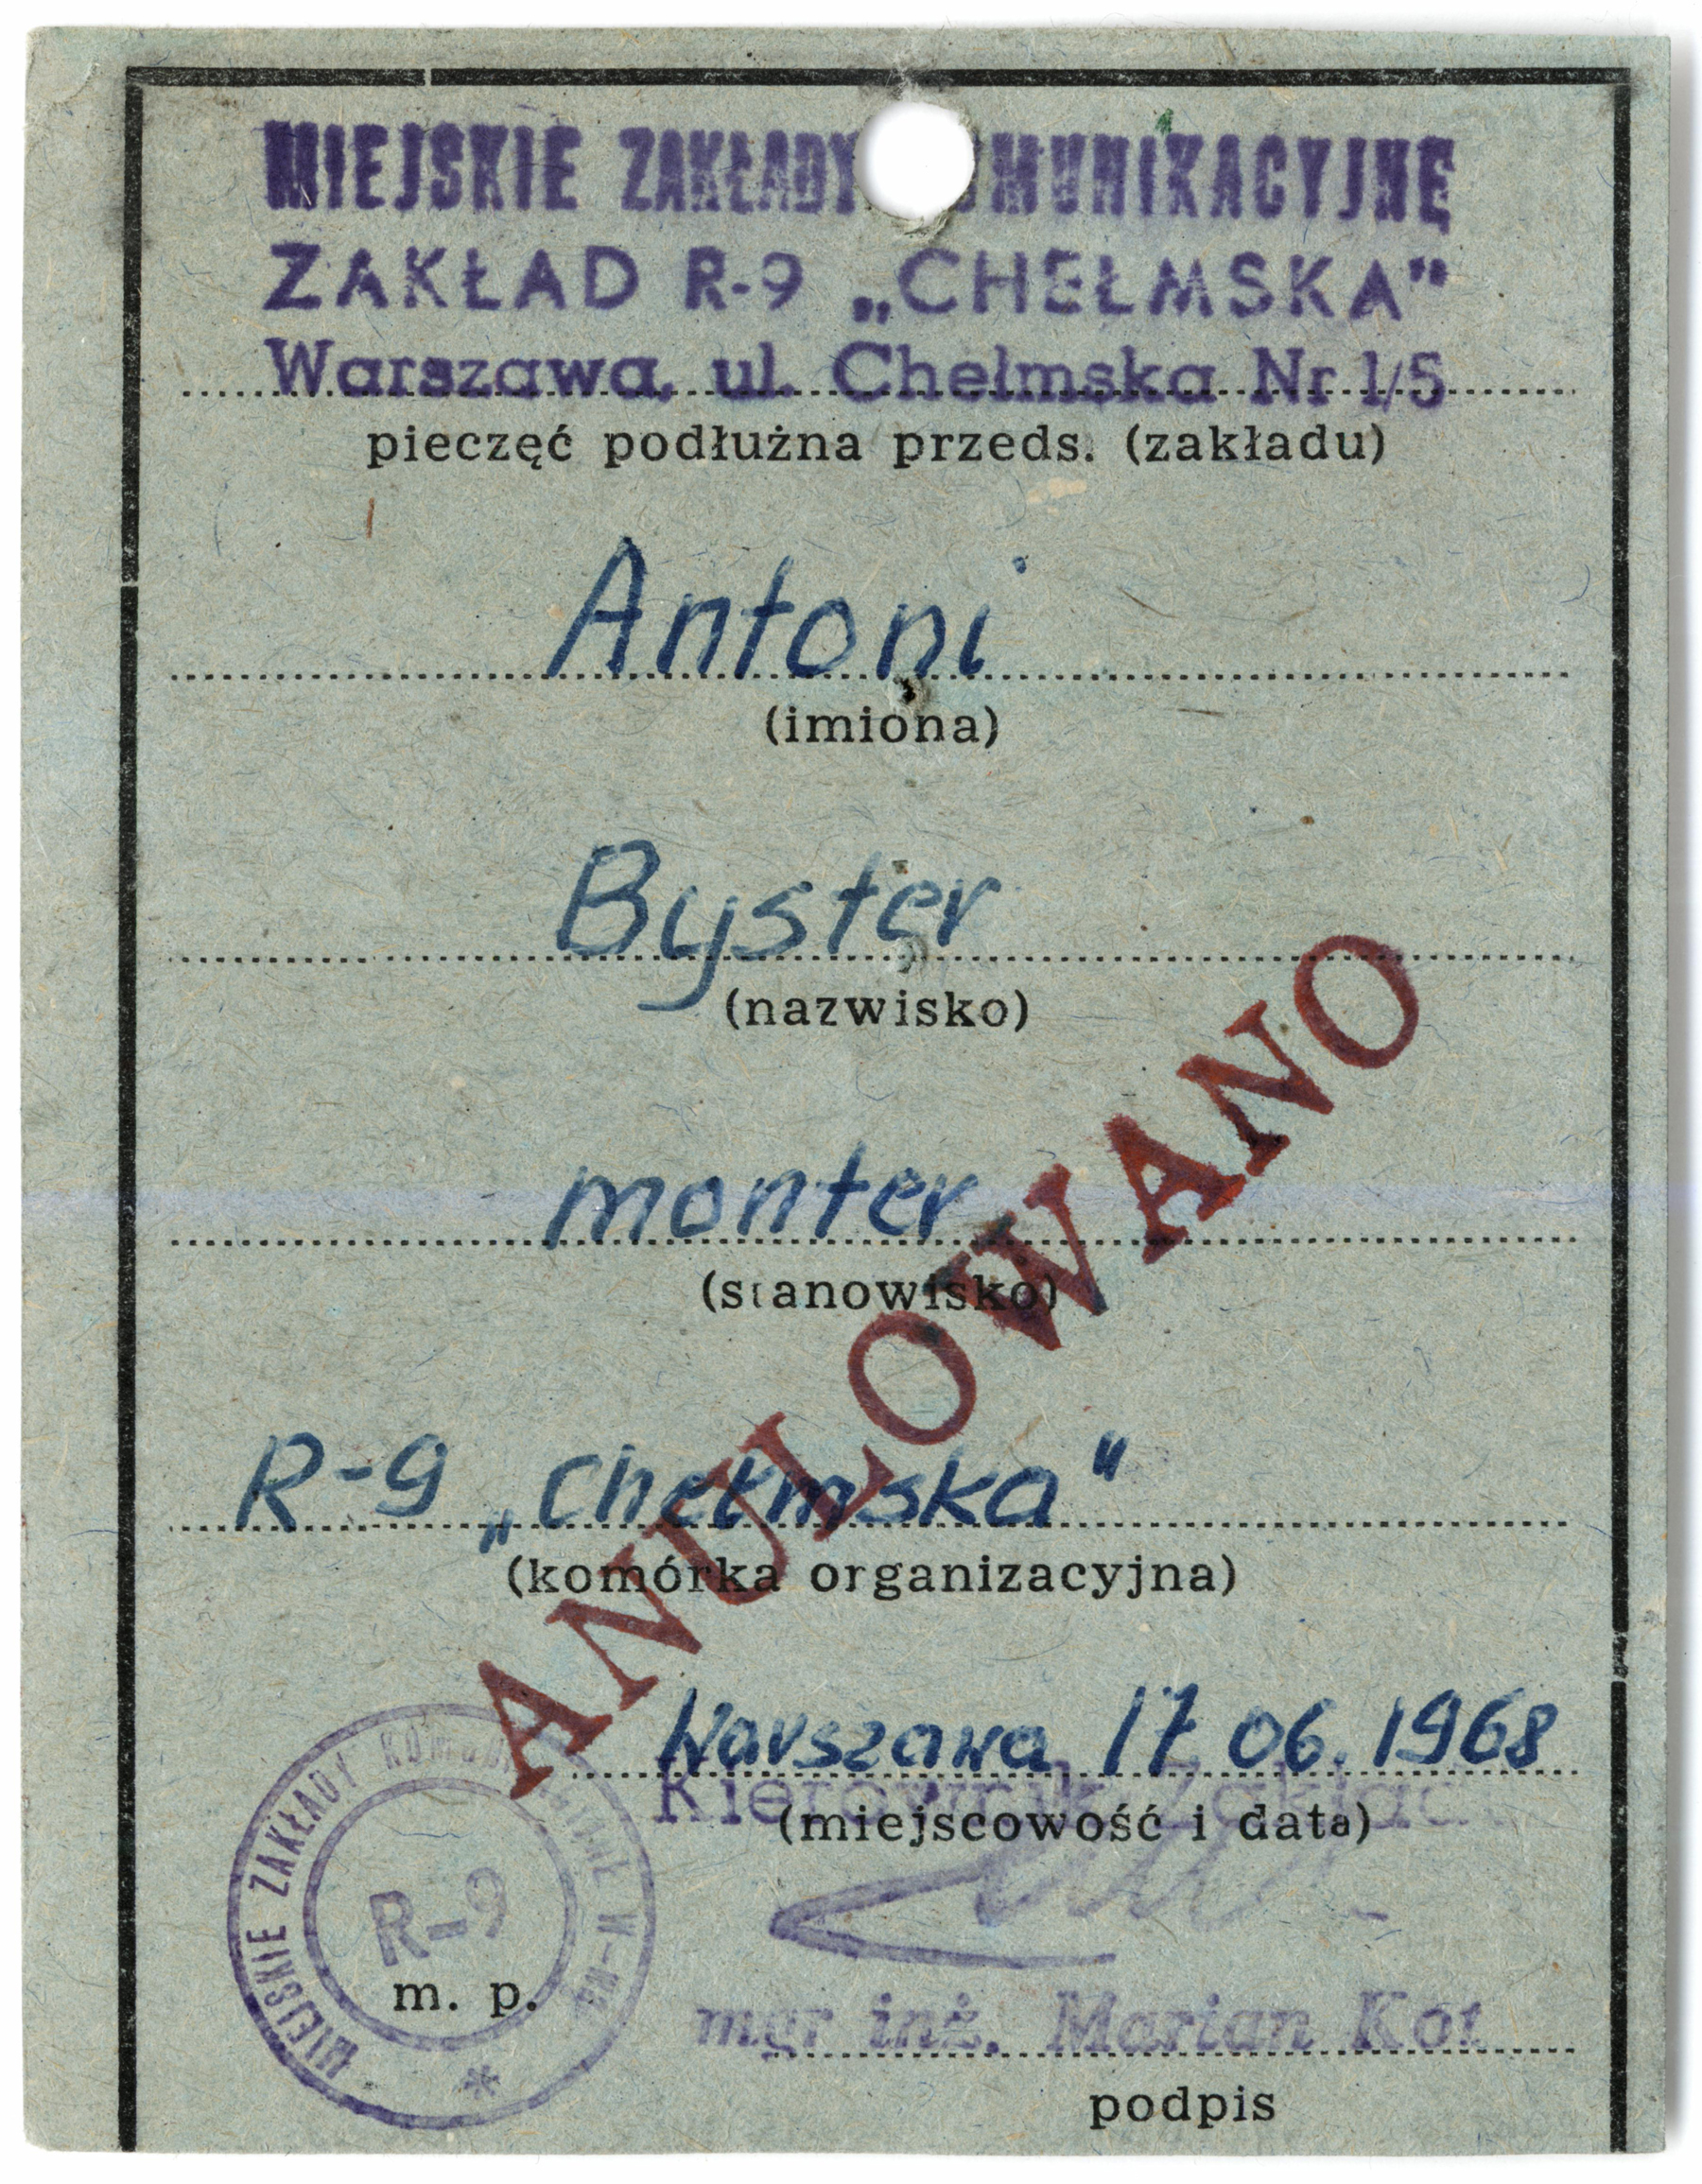 MIEJSKIE ZAKŁADY KOMUNIKACYJNE
ZAKŁAD R-9 „CHEŁMSKA”
Warszawa, ul. Chełmska Nr 1/5
pieczęć podłużna przeds. (zakładu)
Antoni
(imiona)
Byster
(nazwisko)
monter
(stanowisko)
R-9 „Chełmska”
(komórka organizacyjna)
ANULOWANO
Warszawa 17 06.1968
Kierownik Zakładu
(miejscowość i data)
MIEJSKIE ZAKŁADY KOMUNIKACYJNE W W-WIE
R-9
m. p.
mgr inż. Marian Kot
podpis